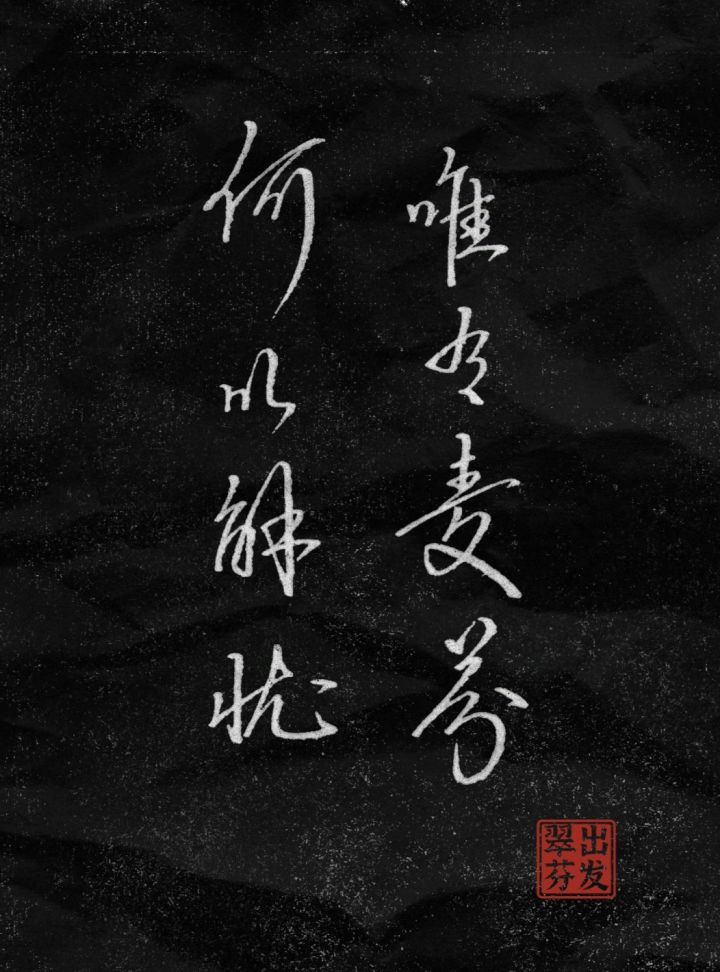 何以解忧
唯有麦芬
翠芬
出发